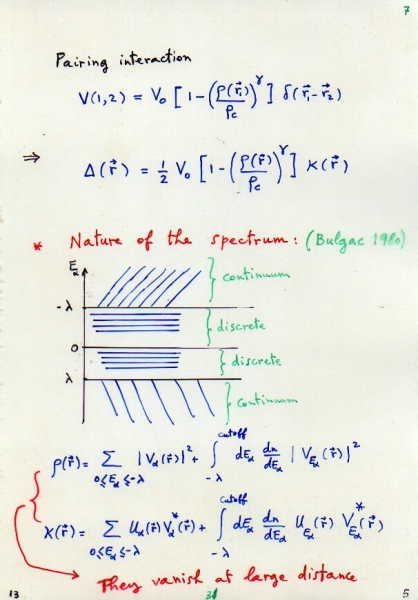 7
Pairing interaction
V(1,2) = V₀ [ 1 - (ρ(r⃗₁)/ρc)^γ ] δ(r⃗₁-r⃗₂)
⇒ Δ(r⃗) = 1/2 V₀ [ 1 - (ρ(r⃗)/ρc)^γ ] κ(r⃗)
* Nature of the spectrum: (Bulgac 1980)
Eα
continuum
-λ
discrete
0
discrete
λ
continuum
ρ(r⃗) = ∑_{0≤Eα≤-λ} |Vα(r⃗)|² + ∫_{-λ}^{cutoff} dEα dn/dEα |V_{Eα}(r⃗)|²
κ(r⃗) = ∑_{0≤Eα≤-λ} Uα(r⃗) Vα*(r⃗) + ∫_{-λ}^{cutoff} dEα dn/dEα U_{Eα}(r⃗) V*_{Eα}(r⃗)
They vanish at large distance
13 5